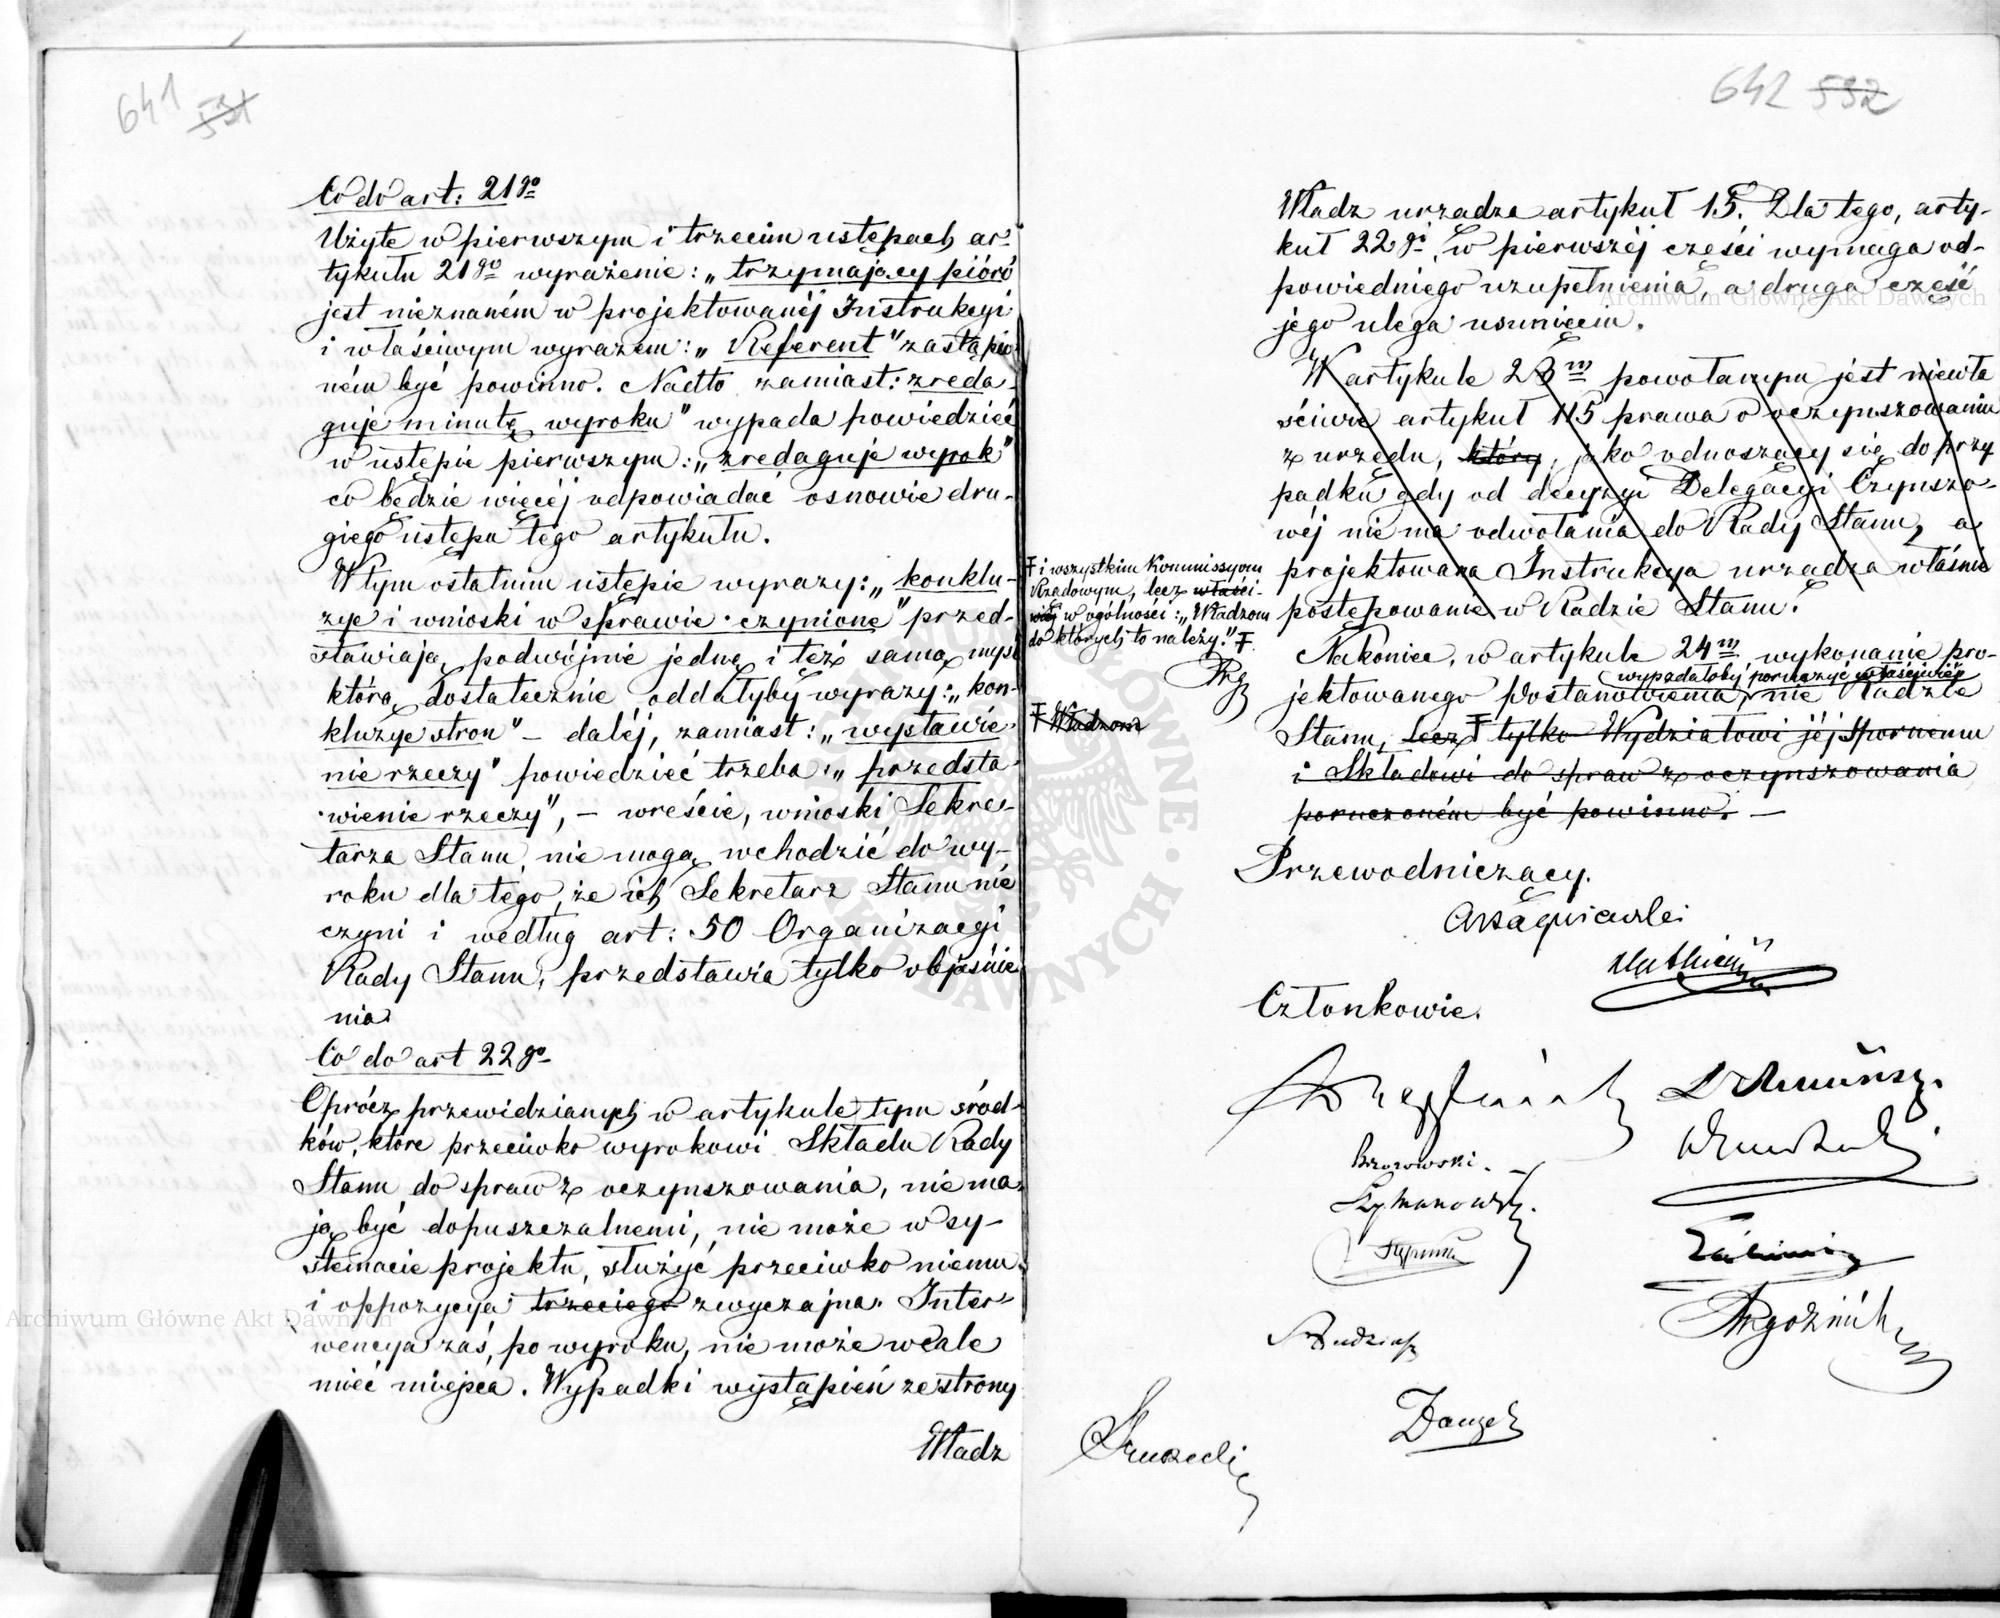 641 531
Co do art: 21go
Użyte w pierwszym i trzecim ustępach ar-
tykułu 21go wyrażenie: „trzymający pióro
jest nieznaném w projektowanéj Instrukcyi
i właściwym wyrazem: „Referent" zastąpio-
ném być powinno. Nadto zamiast: zreda-
guje minutę wyroku" wypada powiedzieć
w ustępie pierwszym: „zredaguje wyrok"
co będzie więcéj odpowiadać osnowie dru-
giego ustępu tego artykułu.
W tym ostatnim ustępie wyrazy: „konklu-
zye i wnioski w sprawie czynione" przed-
stawiają podwójnie jednę i téż samą myśl
którą dostatecznie oddałyby wyrazy: „kon-
kluzye stron" – daléj, zamiast: „wystawie-
nie rzeczy" powiedzieć trzeba: „przedsta-
wienie rzeczy", – wreście, wnioski Sekre-
tarza Stanu nie mogą wchodzić do wy-
roku dla tego, że ich Sekretarz Stanu nie
czyni i według art: 50 Organizacyi
Rady Stanu, przedstawia tylko objaśnie-
nia.
Co do art 22go
Oprócz przewidzianych w artykule tym środ-
ków, które przeciwko wyrokowi Składu Rady
Stanu do spraw z oczynszowania, nie ma-
ją być dopuszczalnemi, nie może w sy-
stemacie projektu, służyć przeciwko niemu
i oppozycya trzeciego zwyczajna. Inter-
wencya zaś, po wyroku, nie może wcale
mieć miejsca. Wypadki wystąpień ze strony
Władz
642 532
Władz urządza artykuł 15. Dla tego, arty-
kuł 22gi, w pierwszéj części wymaga od-
powiedniego uzupełnienia, a druga część
jego ulega usunięciu.
W artykule 23m powołanym jest niewła-
ściwie artykuł 115 prawa o oczynszowaniu
z urzędu, który, jako odnoszący się do przy
padku gdy od decyzyi Delegacyi Czynszo-
wéj nie ma odwołania do Rady Stanu, a
projektowana Instrukcya urządza właśnie
postępowanie w Radzie Stanu.
Ŧ i wszystkim Kommissyom
Rządowym, lecz właści-
wiéj w ogólności: „Władzom
do których to należy." Ŧ
Nakoniec, w artykule 24m wykonanie pro-
wypadałoby poruczyć właściwie
jektowanego Postanowienia, nie Radzie
Ŧ Władzom
Stanu, lecz Ŧ tylko Wydziałowi jéj Spornemu
i Składowi do spraw z oczynszowania
poruczoném być powinno. –
Przewodniczący.
Członkowie.
Brzozowski.
Szymanowski.
Archiwum Główne Akt Dawnych
Archiwum Główne Akt Dawnych